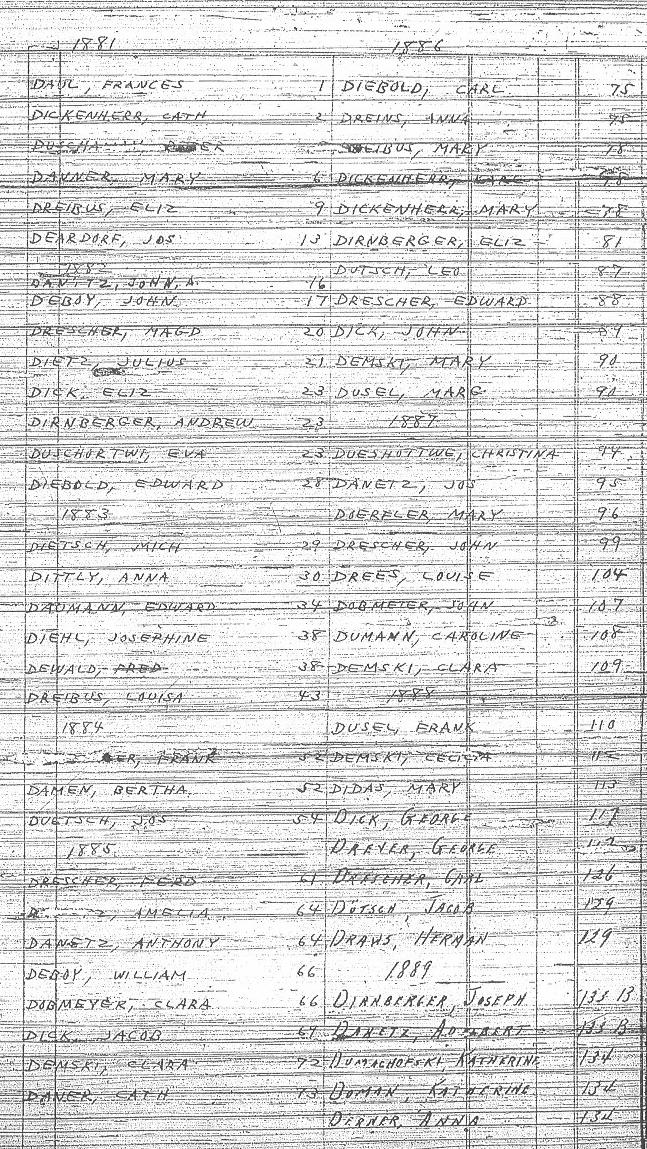 1881
DAUL, FRANCES 1
DICKENHERR, CATH 2
DANNER, MARY 6
DREIBUS, ELIZ 9
DEARDORF, JOS 13
1882
DANITZ, JOHN, A. 16
DEBOY, JOHN 17
DRESCHER, MAGD 20
DIETZ JULIUS 21
DICK, ELIZ 23
DIRNBERGER, ANDREW 23
DUSCHORTWI, EVA 23
DIEBOLD, EDWARD 28
1883
DIETSCH, MICH 29
DITTLY, ANNA 30
DAUMANN, EDWARD 34
DIEHL, JOSEPHINE 38
DEWALD, FRED 38
DREIBUS, LOUISA 43
1884
FRANK 52
DAMEN, BERTHA 52
DUETSCH, JOS 54
1885
DRESCHER, FERD 61
AMELIA 64
DANETZ, ANTHONY 64
DEBOY, WILLIAM 66
DOBMEYER, CLARA 66
DICK, JACOB 67
DEMSKI, CLARA 72
DANER, CATH 73
1886
DIEBOLD, CARL 75
DREINS, ANNA 75
MARY 78
DICKENHERR, CARL 78
DICKENHERR, MARY 78
DIRNBERGER, ELIZ 81
DUTSCH, LEO 87
DRESCHER, EDWARD 88
DICK, JOHN 89
DEMSKI, MARY 90
DUSEL, MARG 91
1887
DUESHOTTWE, CHRISTINA 94
DANETZ, JOS 95
DOERFLER, MARY 96
DRESCHER, JOHN 99
DREES, LOUISE 104
DOBMEIER, JOHN 107
DUMANN, CAROLINE 108
DEMSKI, CLARA 109
1888
DUSEL, FRANK 110
DEMSKI, CECILIA 112
DIDAS, MARY 113
DICK, GEORGE 117
DREYER, GEORGE
DRESCHER, CARL 126
DOTSCH, JACOB 129
DRAWS, HERMAN 129
1889
DIRNBERGER, JOSEPH 133 B
DANETZ, ADELBERT 133 B
DUMACHOFSKI, KATHERINE 134
DOMAN, KATHERINE 134
DERNER, ANNA 134